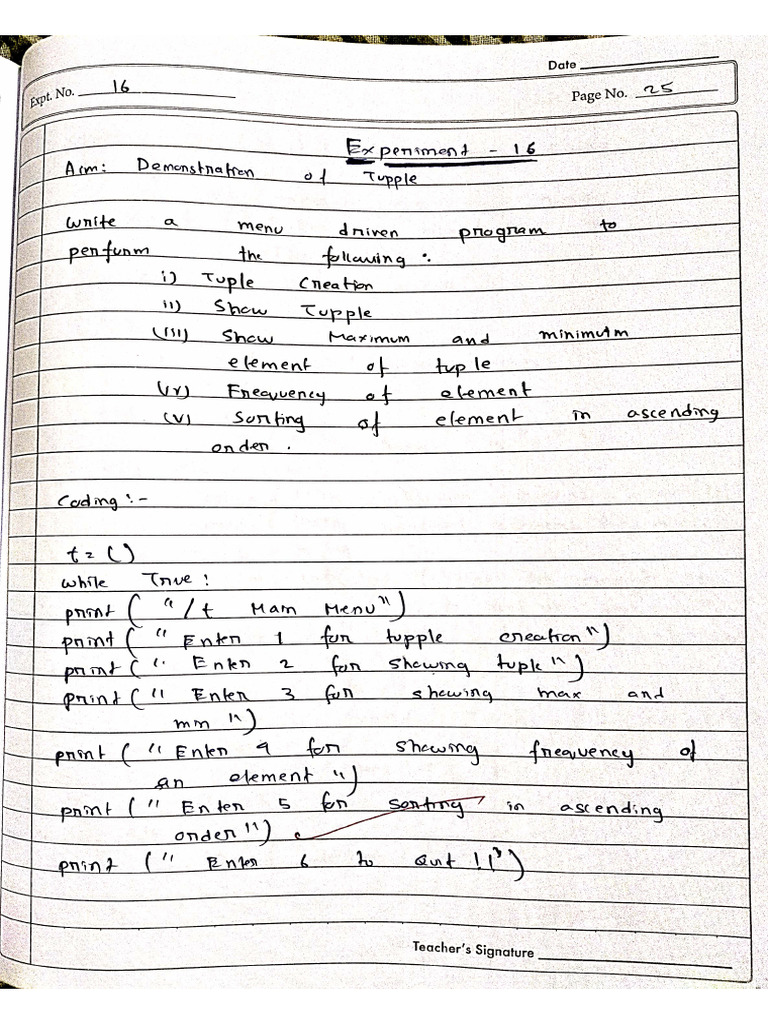 Date
Expt. No. 16
Page No. 25
Experiment - 16
Aim: Demonstration of Tupple
write a menu driven program to
perfurm the following :
i) Tuple Creation
ii) Show Tupple
(iii) Show Maximum and minimum
element of tuple
(iv) Frequency of element
(v) Sorting of element in ascending
order .
Coding :-
t = ()
while True :
print ( "/t Main Menu")
print ( " Enter 1 for tupple creation")
print ( " Enter 2 for showing tuple")
print ( " Enter 3 for showing max and
min ")
print ( " Enter 4 for showing frequency of
an element ")
print ( " Enter 5 for sorting in ascending
order ")
print ( " Enter 6 to Quit !!")
Teacher's Signature